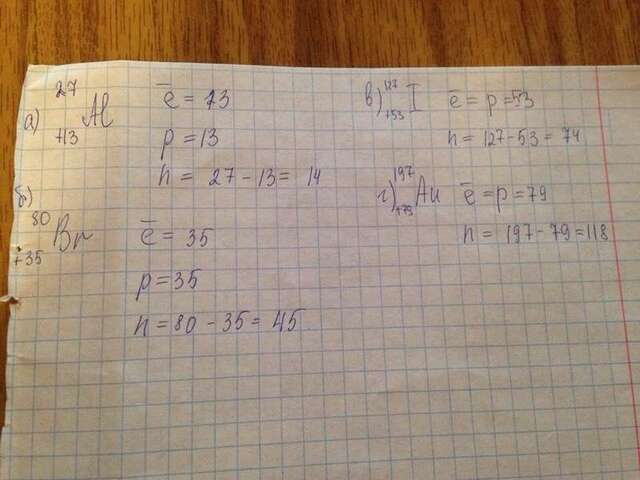 а) ²⁷₊₁₃Al ē = 13
p = 13
n = 27 - 13 = 14
б) ⁸⁰₊₃₅Br ē = 35
p = 35
n = 80 - 35 = 45
в) ¹²⁷₊₅₃I ē = p = 53
n = 127 - 53 = 74
г) ¹⁹⁷₊₇₉Au ē = p = 79
n = 197 - 79 = 118